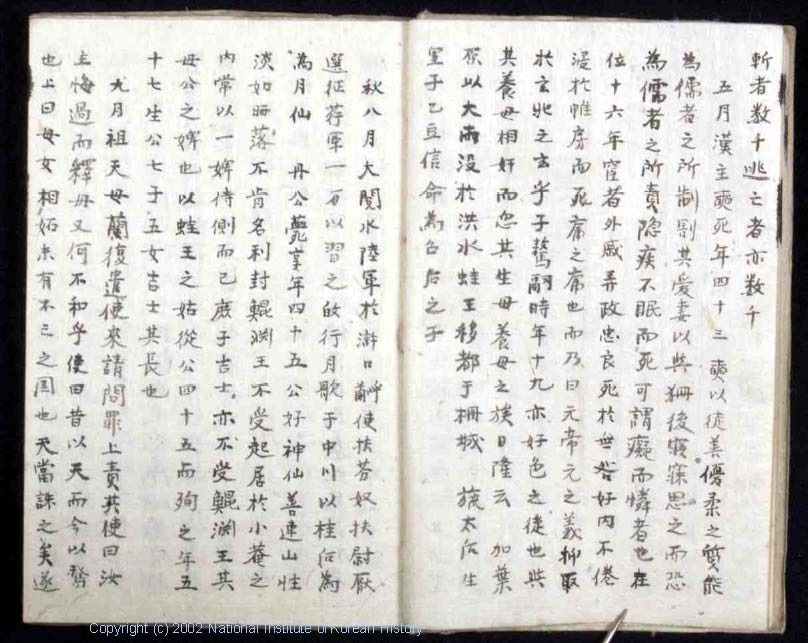 斬者数千逃亡者亦数千
五月漢主奭死年四十三 奭以徒美優柔之質能
為儒者之所制割其愛妻以與狦後寝寐思之而恐
為儒者之所責隐疾不眠而死可謂癡而憐者也在
位十六年宦者外戚弄政忠良死於無咎好内不倦
浸於帷房而死庸之庸也而乃曰元帝元之義抑取
於玄牝之玄乎子驁嗣時年十九亦好色之徒也與
其養母相奸而忽其生母養母之族日隆云 加葉
原以大雨没於洪水蛙王移都于柵城 旋太后生
室子乙豆信命為召后之子
秋八月大閱水陸軍於滸口 使扶芬奴扶尉厭
選征荇軍一万以習之的行月歌于中川以桂后為
為月仙 丹公薨年四十五公好神仙善連山性
淡如 落不肯名利封鯤渊王不受起居於小菴之
内常以一婢侍側而已庶子吉士亦不受鯤渊王其
母公之婢也以蛙王之姑從公四十五而殉之年五
十七生公七子五女吉士其長也
九月祖天母蘭復遣使來請問罪上責其使曰汝
主悔過而釋毋又何不和乎使曰昔以天而今以驁
也上曰母女相妬未有不亡之国也天當誅之矣遂
Copyright (c) 2002 National Institute of Korean History